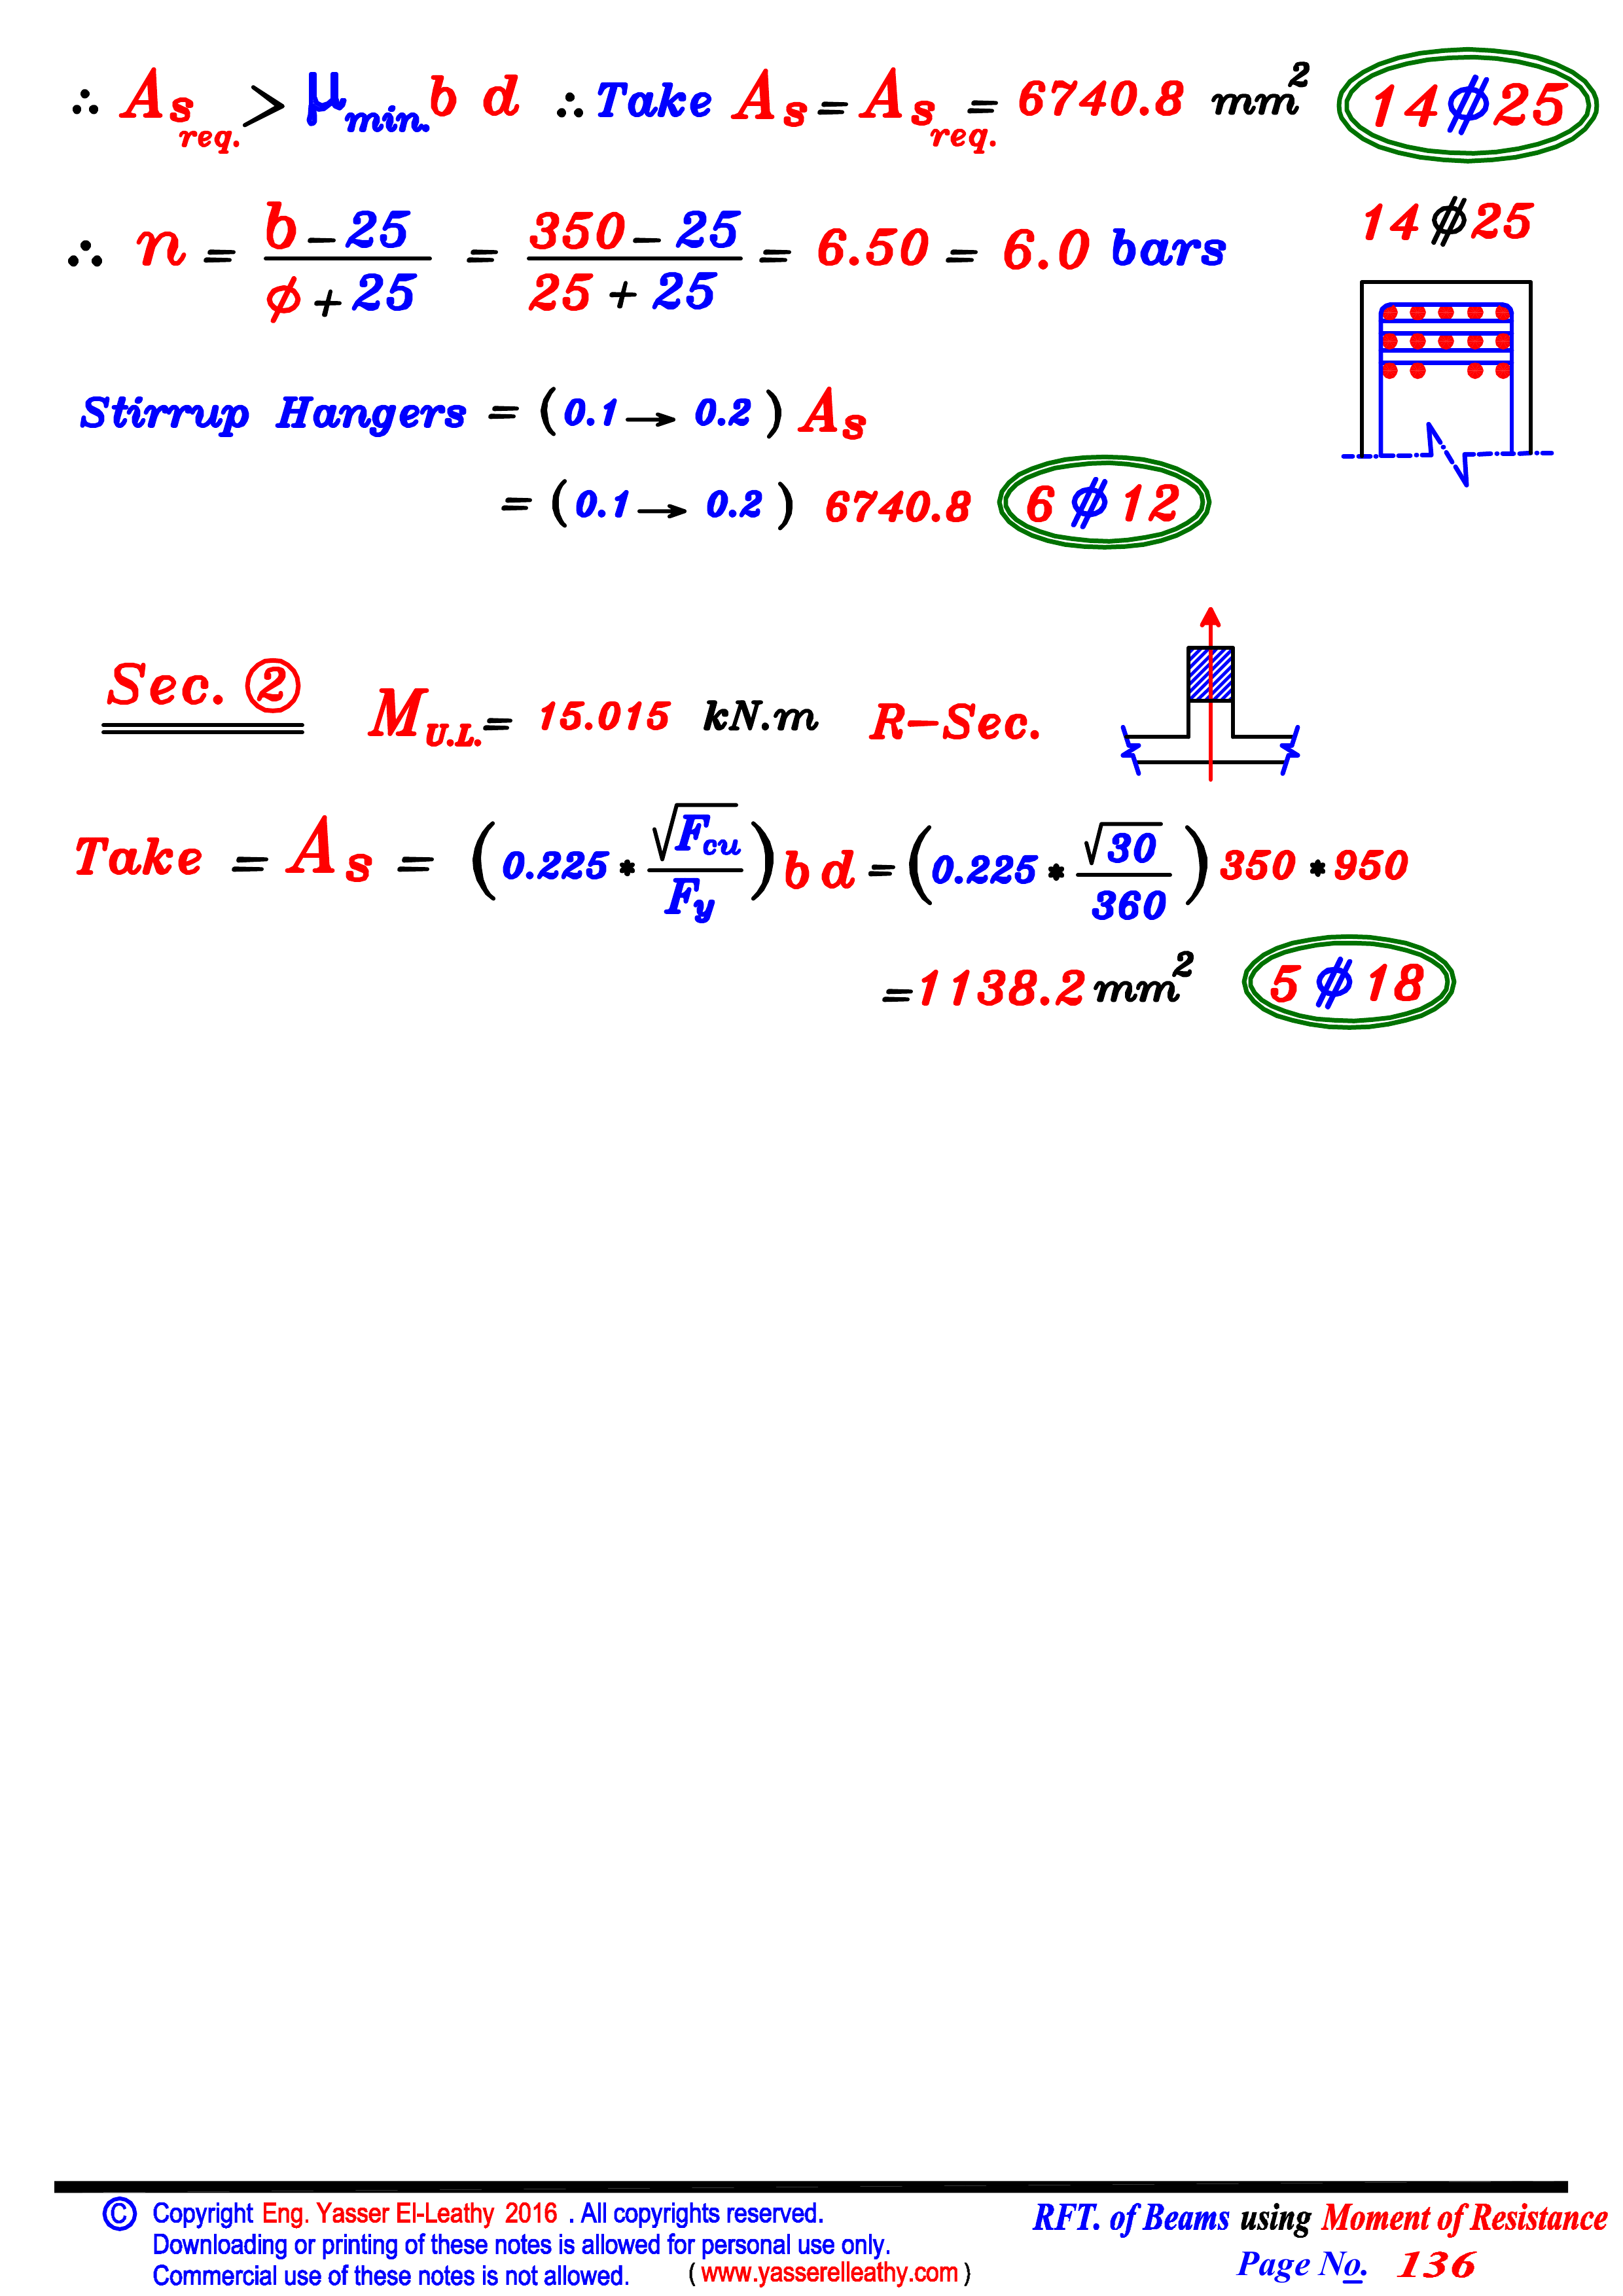 ∴ As req. > μ min. b d ∴ Take As = As req. = 6740.8 mm² 14 ϕ 25
∴ n = (b - 25) / (ϕ + 25) = (350 - 25) / (25 + 25) = 6.50 = 6.0 bars
14 ϕ 25
Stirrup Hangers = (0.1 → 0.2) As
= (0.1 → 0.2) 6740.8 6 ϕ 12
Sec. ② M U.L. = 15.015 kN.m R-Sec.
Take = As = (0.225 * √Fcu / Fy) b d = (0.225 * √30 / 360) 350 * 950
= 1138.2 mm² 5 ϕ 18
© Copyright Eng. Yasser El-Leathy 2016 . All copyrights reserved.
Downloading or printing of these notes is allowed for personal use only.
Commercial use of these notes is not allowed. ( www.yasserelleathy.com )
RFT. of Beams using Moment of Resistance
Page No. 136